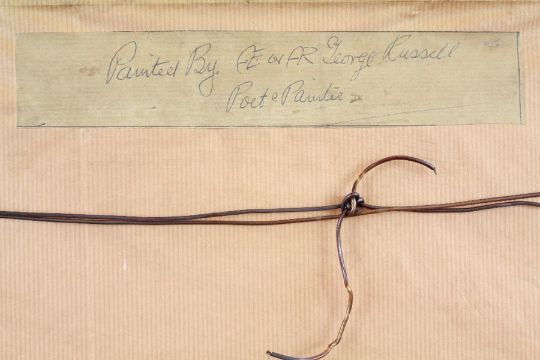 Painted By. AE or AR George Russell
Poet & Painter